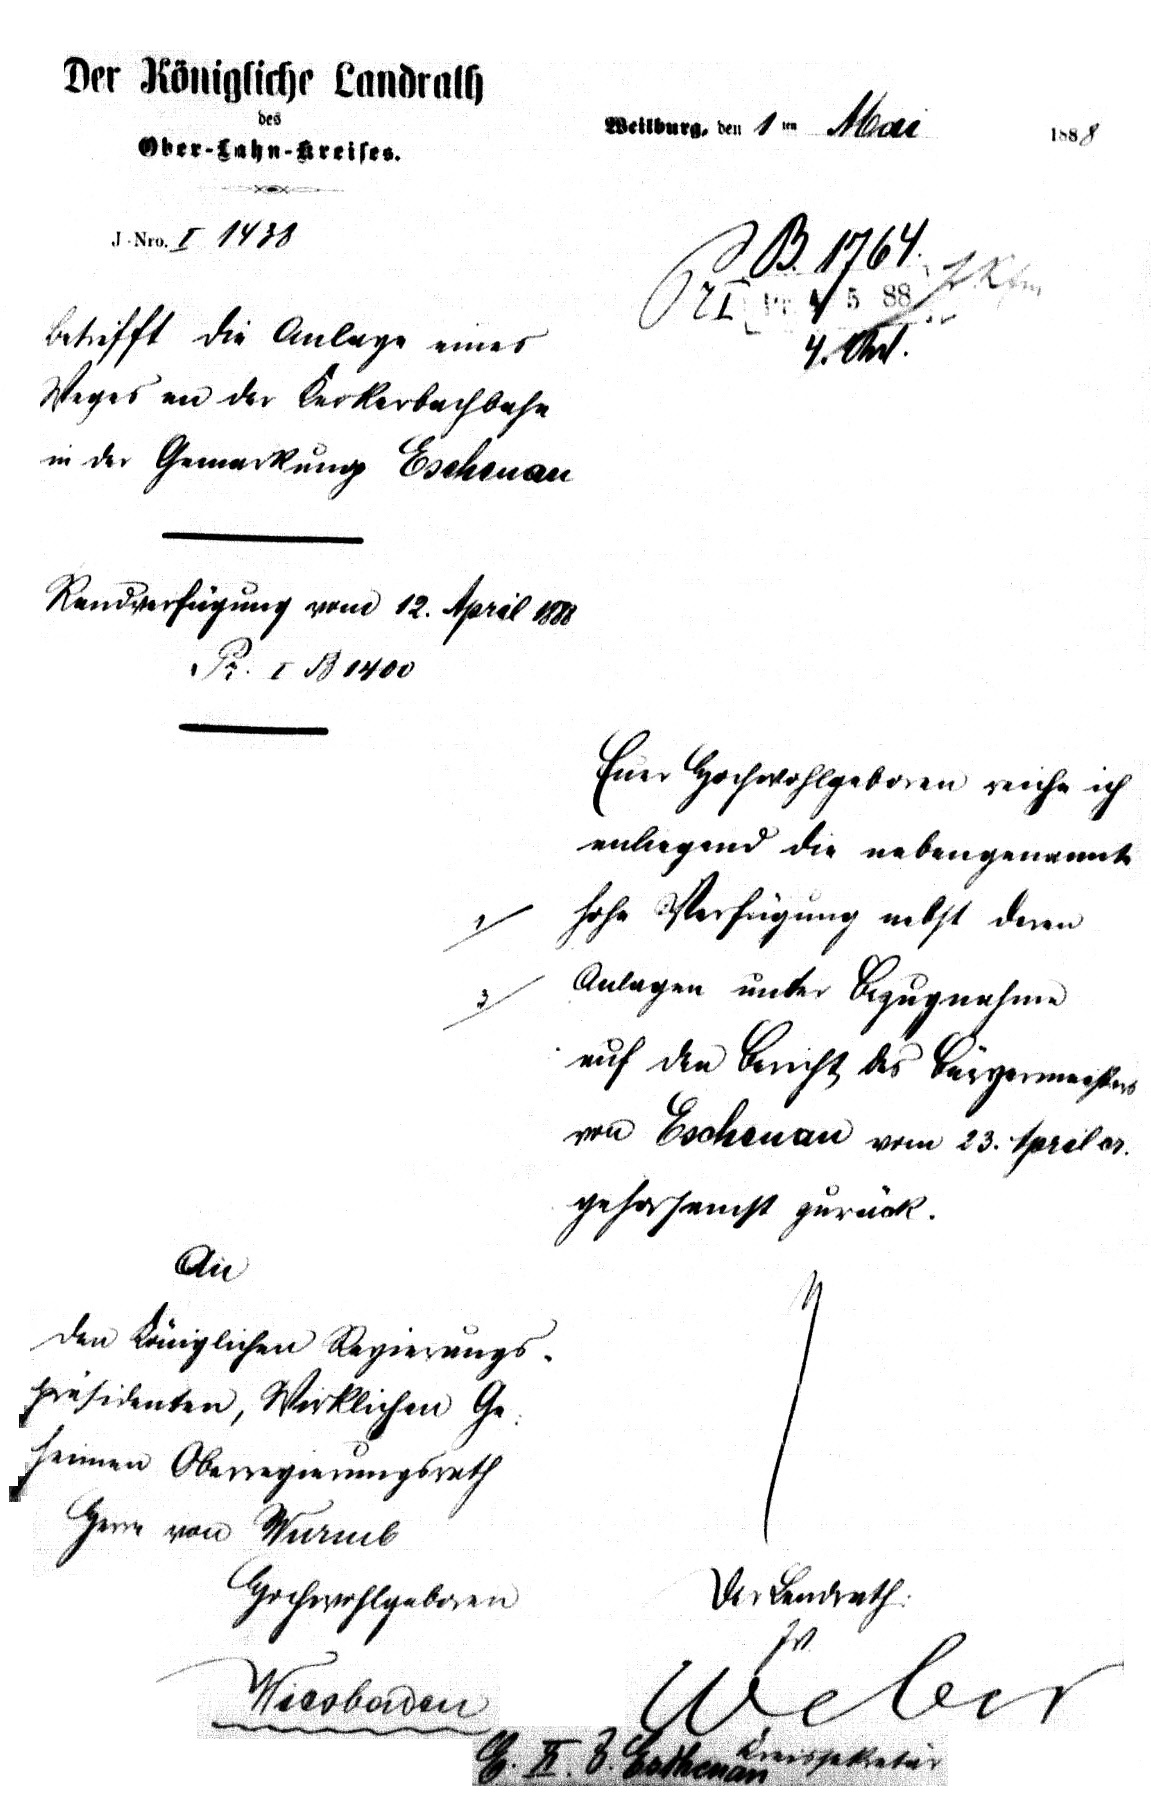 Der Königliche Landrath
des
Ober-Lahn-Kreises.
Weilburg, den 1 ten Mai 1888
J.-Nro. I 1438
B. 1764.
Pr I Pr. 4/5 88
betrifft die Anlage eines
Weges an der Kerkerbachbahn
in der Gemarkung Eschenau
Randverfügung vom 12. April 1888
Pr. I B 1400
Euer Hochwohlgeboren reiche ich
anliegend die nebengenannte
1/ hohe Verfügung nebst deren
3/ Anlagen unter Bezugnahme
auf den Bericht des Bürgermeisters
von Eschenau vom 23. April cr.
gehorsamst zurück.
An
den Königlichen Regierungs-
präsidenten, Wirklichen Ge-
heimen Oberregierungsrath
Herrn von Wurmb
Hochwohlgeboren
Wiesbaden
Der Landrath:
JV
Weber
Kreissekretär
Eschenau